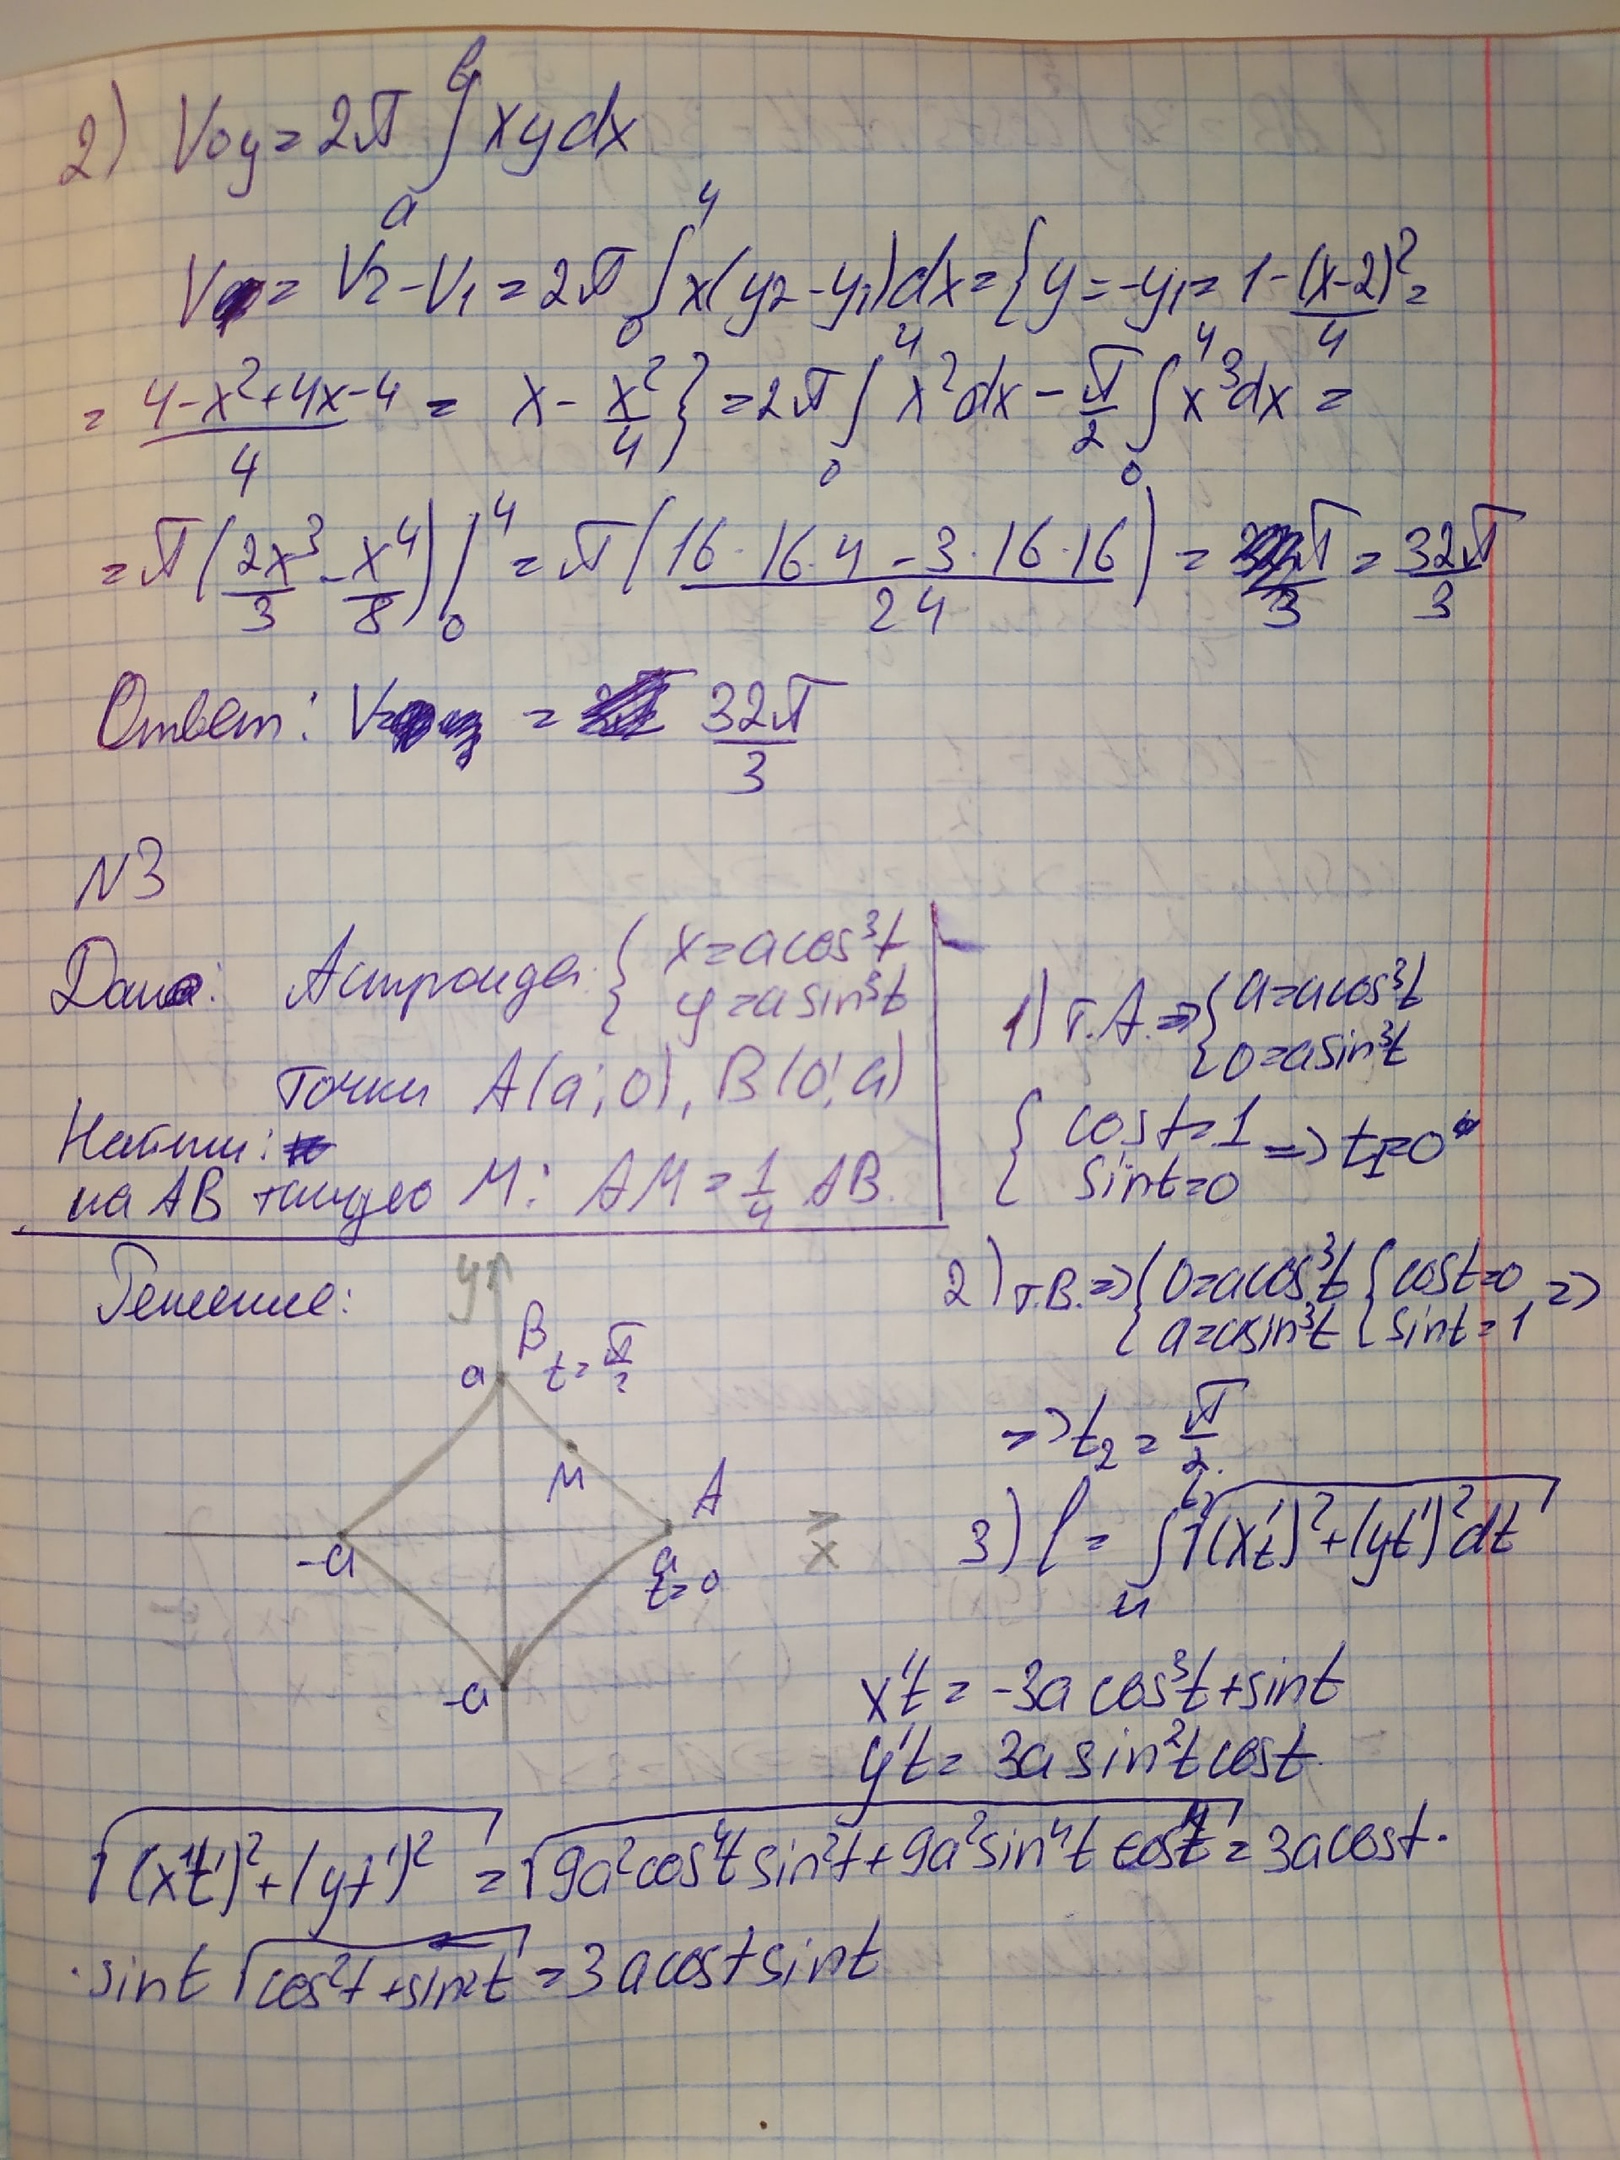 2) Voy = 2π ∫ₐᵇ xydx
V = V₂ - V₁ = 2π ∫₀⁴ x(y₂ - y₁)dx = {y = -y₁ = 1 - (x-2)²/4 =
= (4 - x² + 4x - 4)/4 = x - x²/4} = 2π ∫₀⁴ x²dx - π/2 ∫₀⁴ x³dx =
= π (2x³/3 - x⁴/8) |₀⁴ = π ((16·16·4 - 3·16·16)/24) = = 32π/3
Ответ: V = 32π/3
N3
Дано: Астроида: { x = acos³t
y = asin³t
Точки A(a;0), B(0;a)
Найти:
на AB точку M: AM = 1/4 AB.
1) т.A. => { a = acos³t
0 = asin³t
{ cost = 1
sint = 0 => t₁ = 0
2) т.B. => { 0 = acos³t { cost = 0
a = asin³t { sint = 1 =>
=> t₂ = π/2.
Решение:
y
B
a t = π/2
M
A
-a a x
t = 0
-a
3) l = ∫ₜ₁ᵗ² √((x't)² + (yt')²) dt
x't = -3a cos³t + sint
y't = 3a sin²t cost.
√((x't')² + (yt')²) = √(9a²cos⁴t sin²t + 9a²sin⁴t cos²t) = 3acost·
·sint √(cos²t + sin²t) = 3acost sint